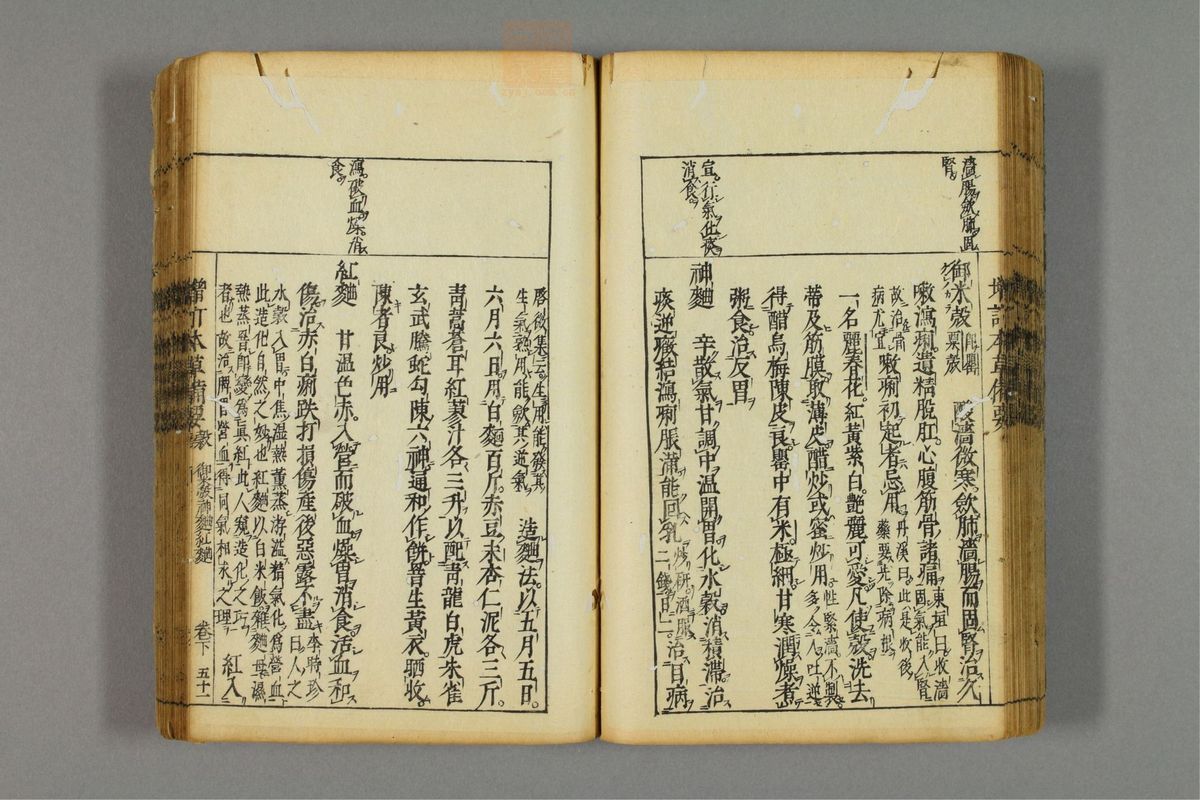 增訂本草備要
濇腸斂肺固
腎
御米殼 即罌粟殼 酸濇微寒斂肺濇腸而固腎治久
嗽瀉痢遺精脫肛心腹筋骨諸痛 東垣曰收濇固氣能入腎
故治骨病尤宜 嗽痢初起者忌用 丹溪曰此是收後藥要先除病根
一名麗春花紅黃紫白艷麗可愛凡使殼洗去
蒂及筋膜取薄皮醋炒或蜜炒用 性緊濇不製多令人吐逆
得醋烏梅陳皮良罌中有米極細甘寒潤燥煮
粥食治反胃
宣行氣化痰
消食
神麯 辛散氣甘調中温開胃化水穀消積滯治
痰逆癥結瀉痢脹滿能回乳 炒研酒服二錢日二 治目病
啓後集云生用能發其生氣熟用能斂其逆氣 造麯法以五月五日
六月六日用白麵百斤赤豆末杏仁泥各三斤
靑蒿蒼耳紅蓼汁各三升以配靑龍白虎朱雀
玄武螣蛇勾陳六神通和作餅罨生黃衣晒收
陳者良炒用
瀉破血燥消
食
紅麯 甘温色赤入營而破血燥胃消食活血和
傷治赤白痢跌打損傷產後惡露不盡 李時珍曰人之
水穀入胃中焦湿熱薰蒸游溢精氣化爲營血
此造化自然之妙也紅麯以白米飯雜麯母濕
熱蒸罨即變爲真紅此人窺造化之巧
者也故治脾胃營血得同氣相求之理 紅入
增訂本草備要 穀 御米殼神麯紅麯 卷下 五十一